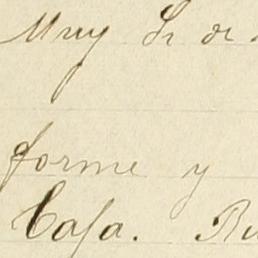 Muy Sr
forme y
Casa.